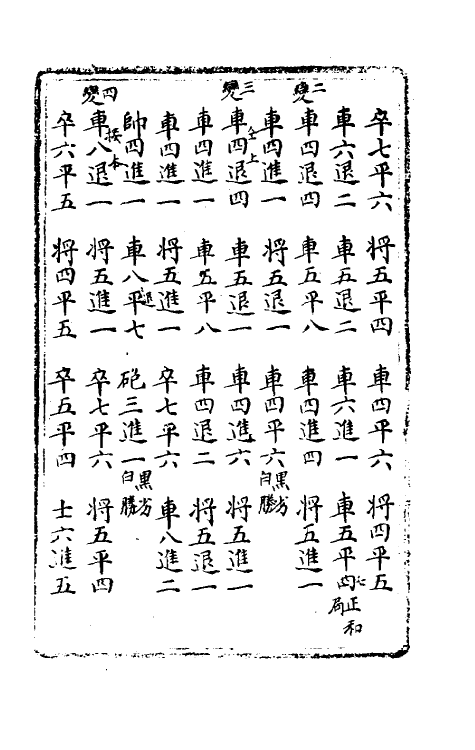 卒七平六　將五平四　車四平六　將四平五
車六退二　車五退二　車六進一　車五平四　正和局
二變　車四退四　車五平八　車四進四　將五進一
車四進一　將五退一　車四平六　黑劣白勝
三變　車四退四　車五退一　車四進六　將五進一
車四進一　車五平八　車四退二　將五退一
車四進一　將五進一　卒七平六　車八進二
帥四進一　車八平七　砲三進一　黑劣白勝
四變　車八退一　將五進一　卒七平六　將五平四
卒六平五　將四平五　卒五平四　士六進五